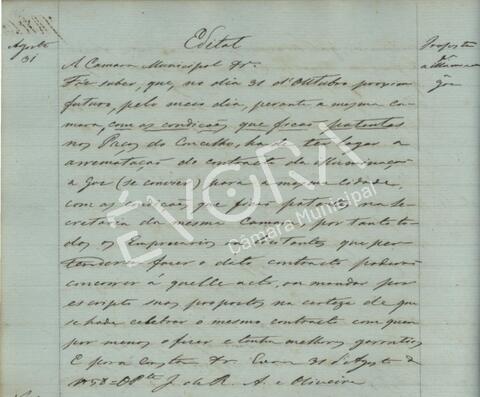 Edital
Agosto
31
A Camara Municipal &ra.
Faz saber, que, no dia 31 d'Outubro proximo
futuro, pelo meio dia, perante a mesma ca-
mara, com as condições que ficão patentes
nos Paços do Concelho, ha de ter logar a
arrematação do contracto da illuminação
a Gaz (se convier) para a mesma Cidade,
com as condições que ficão patentes na Se-
cretaria da mesma Camara; por tanto to-
dos os Emprezarios licitantes que per-
tenderem fazer o dito contracto poderão
concorrer á quelle acto, ou mandar por
escripto suas propostas na certeza de que
se hade celebrar o mesmo contracto com quem
por menos o fizer e tenha melhores garantias
E para constar &ra. Evora 31 d'Agosto de
1858 = O Pte J. de R. A. e Oliveira
a
Gaz
ÉVORA
Câmara Municipal